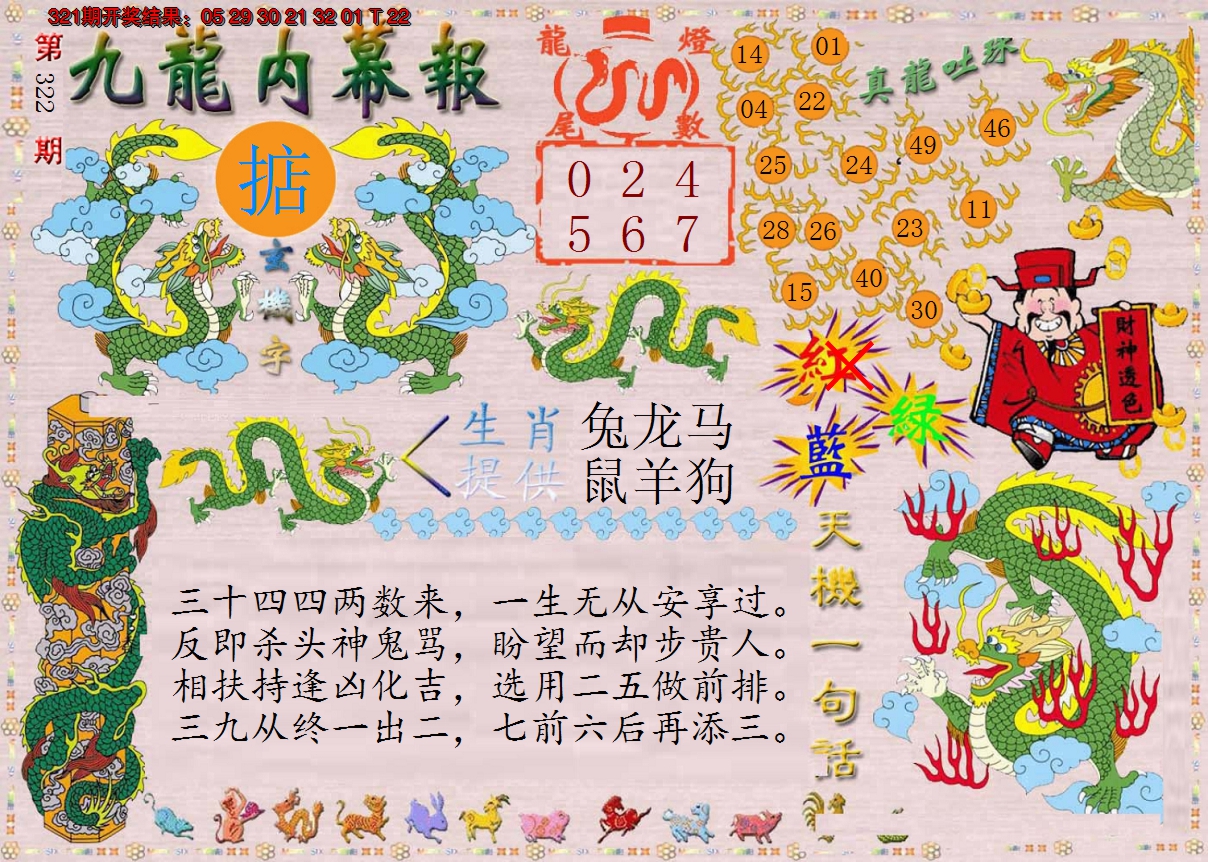 321期开奖结果：05 29 30 21 32 01 T 22
第322期
九龍内幕報
掂
玄機字
龍燈
尾數
0 2 4
5 6 7
真龍吐珠
14 01
04 22
25 24 49 46
28 26 23 11
15 40 30
紅
綠
藍
財神透色
生肖
提供
兔龙马
鼠羊狗
天機一句话
三十四四两数来，一生无从安享过。
反即杀头神鬼骂，盼望而却步贵人。
相扶持逢凶化吉，选用二五做前排。
三九从终一出二，七前六后再添三。